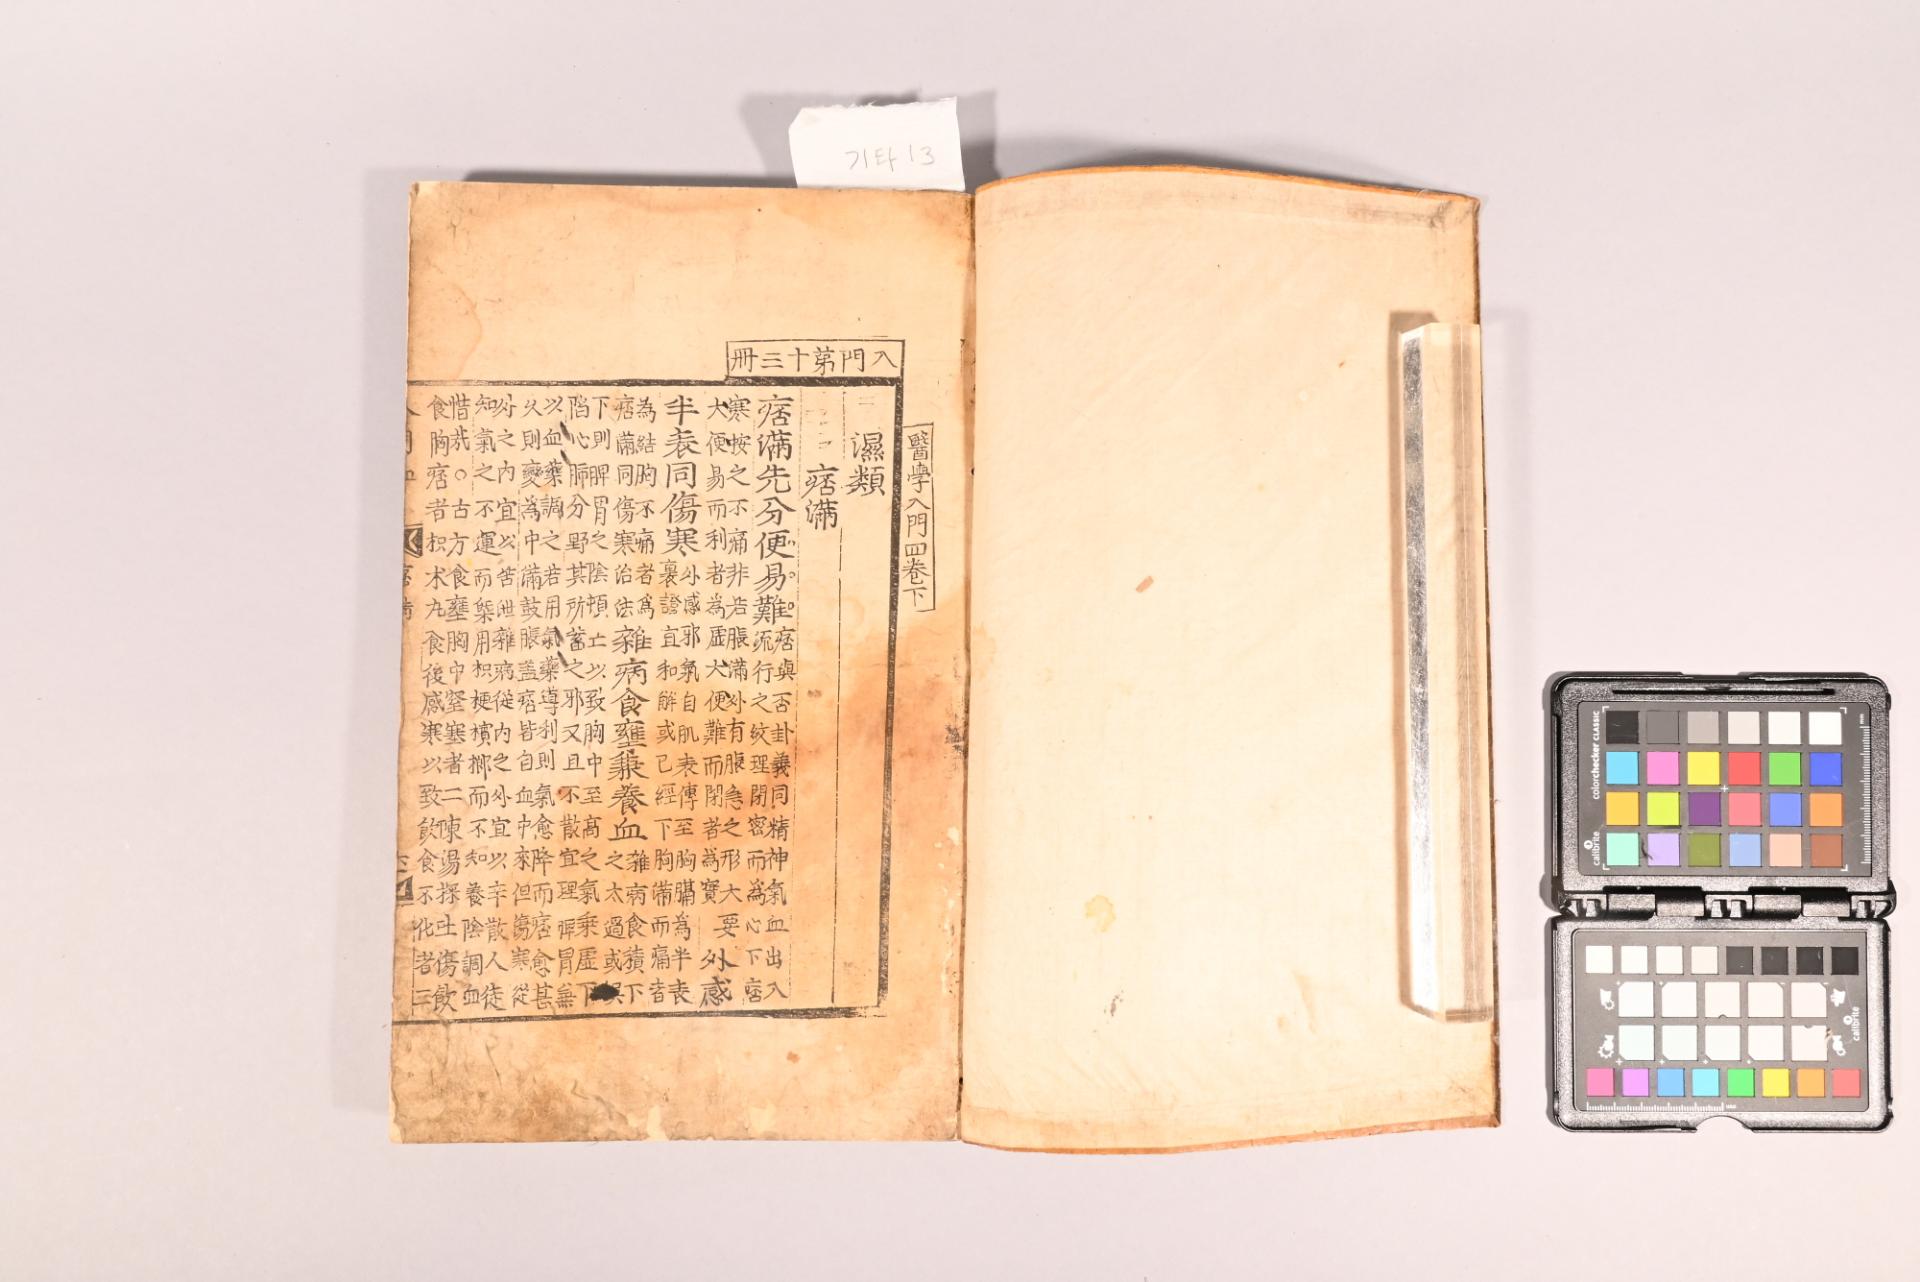 기타 13
入門第十三冊
醫學入門四卷下
濕類
痞滿
痞滿先分便易難
痞與否卦義同精神氣血出入
流行之紋理閉密而為心下痞
寒按之不痛非若脹滿外有脹急之形大要
大便易而利者為虛大便難而閉者為實
外感半表同傷寒
外感邪氣自肌表傳至胸膈為半表
裏證宜和解或已經下胸滿而痛者
為結胸不痛者為
痞滿同傷寒治法
雜病食壅兼養血
雜病食積下
之太過或誤
下則脾胃之陰頓亡以致胸中至高之氣乘虛下
陷心肺分野其所蓄之邪又且不散宜理脾胃兼
以血藥調之若用氣藥導利則氣愈降而痞愈甚
久則變為中滿鼓脹盖痞皆自血中來但傷寒從
外之內宜以苦泄雜病從內之外宜以辛散人徒
知氣之不運而槩用枳梗檳榔而不知養陰調血
惜哉○古方食壅胸中窒塞者二陳湯探吐傷飲
食胸痞者枳朮丸食後感寒以致飲食不化者二
calibrite
colorchecker CLASSIC
calibrite